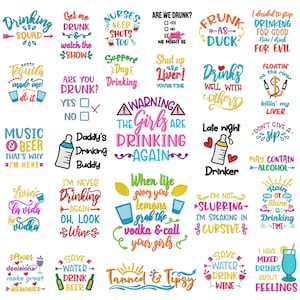 Drinking
SQUAD
Get me
DRUNK
&
watch the
SHOW
NURSES
NEED
SHOTS
TOO
ARE WE DRUNK?
YES
NO
DRUNK
AS
DUCK
I decided to stop
DRINKING
FOR GOOD
FOR EVIL
Tequila
made me
do it
ARE YOU
DRUNK?
YES
NO
Support
Day
Drinking
Shut up
LIVER!
YOU'RE FINE
Drinks
WELL WITH
others
FLOATIN'
on the river
killin' my
LIVER
MUSIC
& BEER
THAT'S WHY
I'M HERE
Daddy's
Drinking
Buddy
WARNING
THE GIRLS ARE
DRINKING
AGAIN
Late night
Drinker
DON'T
give a
SIP
MAY CONTAIN
ALCOHOL
Livin'
la vida
by vodka
I'M NEVER
DRINKING
again
OH, LOOK
Wine
When life
gives you
lemons
grab the
vodka & call
your girls
I'M NOT
SLURRING
I'M SPEAKING IN
CURSIVE
Rain
or
Shine
It's
DRINKING
Time
Poor
decisions
make great
memories
SAVE
WATER
DRINK
BEER
Tanned & Tipsy
SAVE
WATER
DRINK
WINE
I HAVE
MIXED
DRINKS
ABOUT
FEELINGS